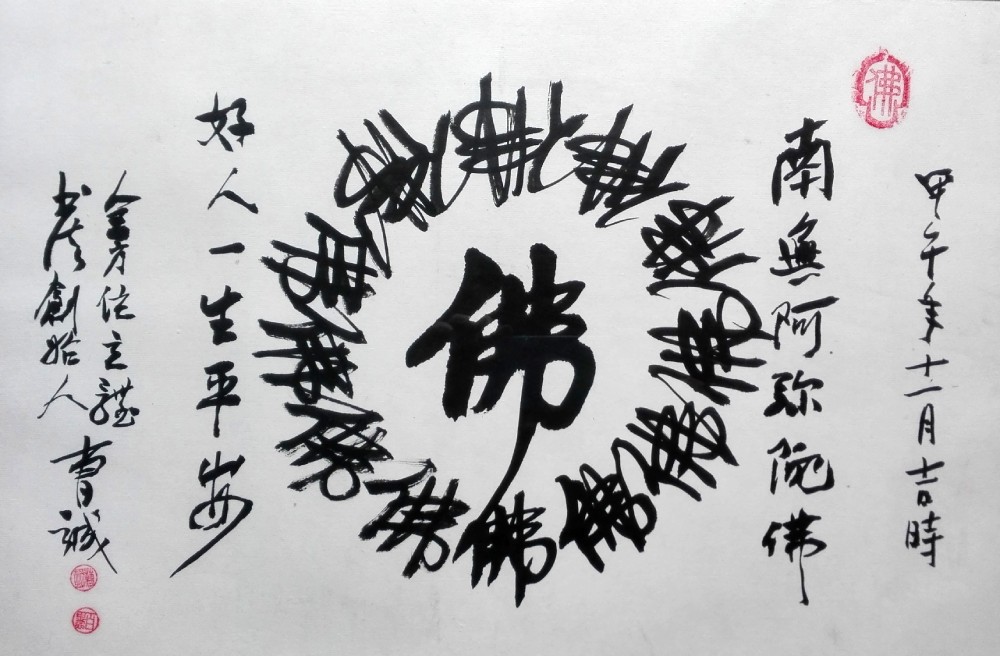 佛
甲午年十一月吉時
南無阿弥陀佛
佛
佛
好人一生平安
全方位立體
书法創始人
曹誠